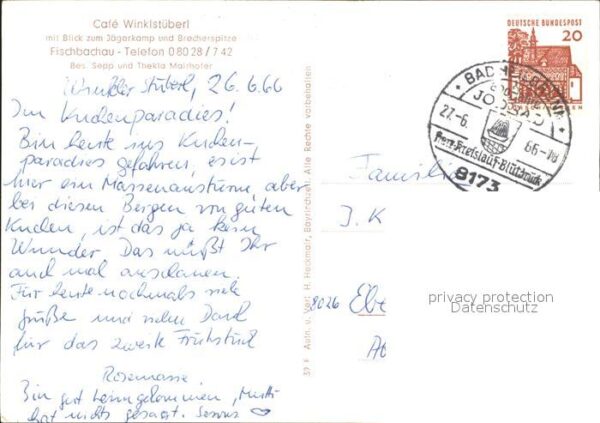 Café Winklstüberl
mit Blick zum Jägerkamp und Brecherspitze
Fischbachau - Telefon 0 80 28 / 7 42
Bes. Sepp und Thekla Mairhofer
Winkler Stüberl, 26.6.66
Im Kuchenparadies!
Bin heute ins Kuchen-
paradies gefahren, es ist
hier ein Massenansturm, aber
bei diesen Bergen von guten
Kuchen, ist das ja kein
Wunder. Das müßt Ihr
auch mal anschauen.
Für heute nochmals viele
Grüße und vielen Dank
für das zweite Frühstück
Rosemarie.
Bin gut heimgekommen, Mutti
hat nichts gesagt. Servus
39 F Aufn. u. Verl. H. Heckmair, Bayrischzell. Alle Rechte vorbehalten
DEUTSCHE BUNDESPOST
20
BAD HEILBRUNN
JODBAD
27.-6. 66-18
Herz-Kreislauf-Blutdruck
8173
Familie
J. K
8026 Ebe
privacy protection
Datenschutz